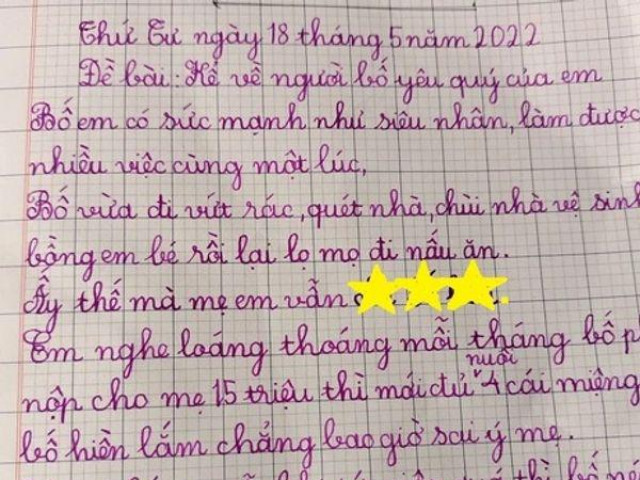 Thứ Tư ngày 18 tháng 5 năm 2022
Đề bài: Kể về người bố yêu quý của em
Bố em có sức mạnh như siêu nhân, làm được
nhiều việc cùng một lúc,
Bố vừa đi vứt rác, quét nhà, chùi nhà vệ sinh
bồng em bé rồi lại lọ mọ đi nấu ăn.
Ấy thế mà mẹ em vẫn
Em nghe loáng thoáng mỗi tháng bố
nộp cho mẹ 15 triệu thì mới đủ nuôi 4 cái miệng
bố hiền lắm chẳng bao giờ sai ý mẹ.